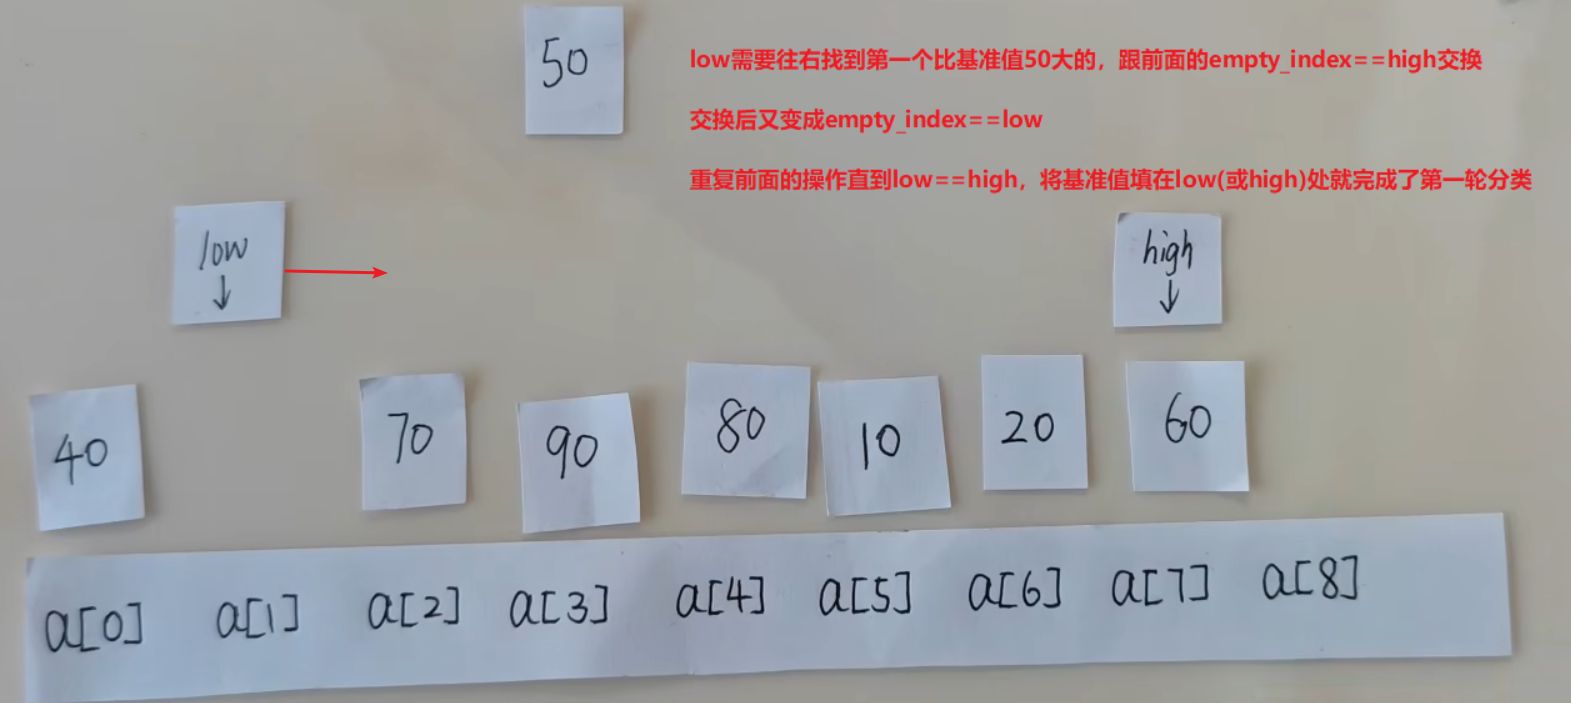 50
low需要往右找到第一个比基准值50大的，跟前面的empty_index==high交换
交换后又变成empty_index==low
重复前面的操作直到low==high，将基准值填在low(或high)处就完成了第一轮分类
low
↓
high
↓
40 70 90 80 10 20 60
a[0] a[1] a[2] a[3] a[4] a[5] a[6] a[7] a[8]